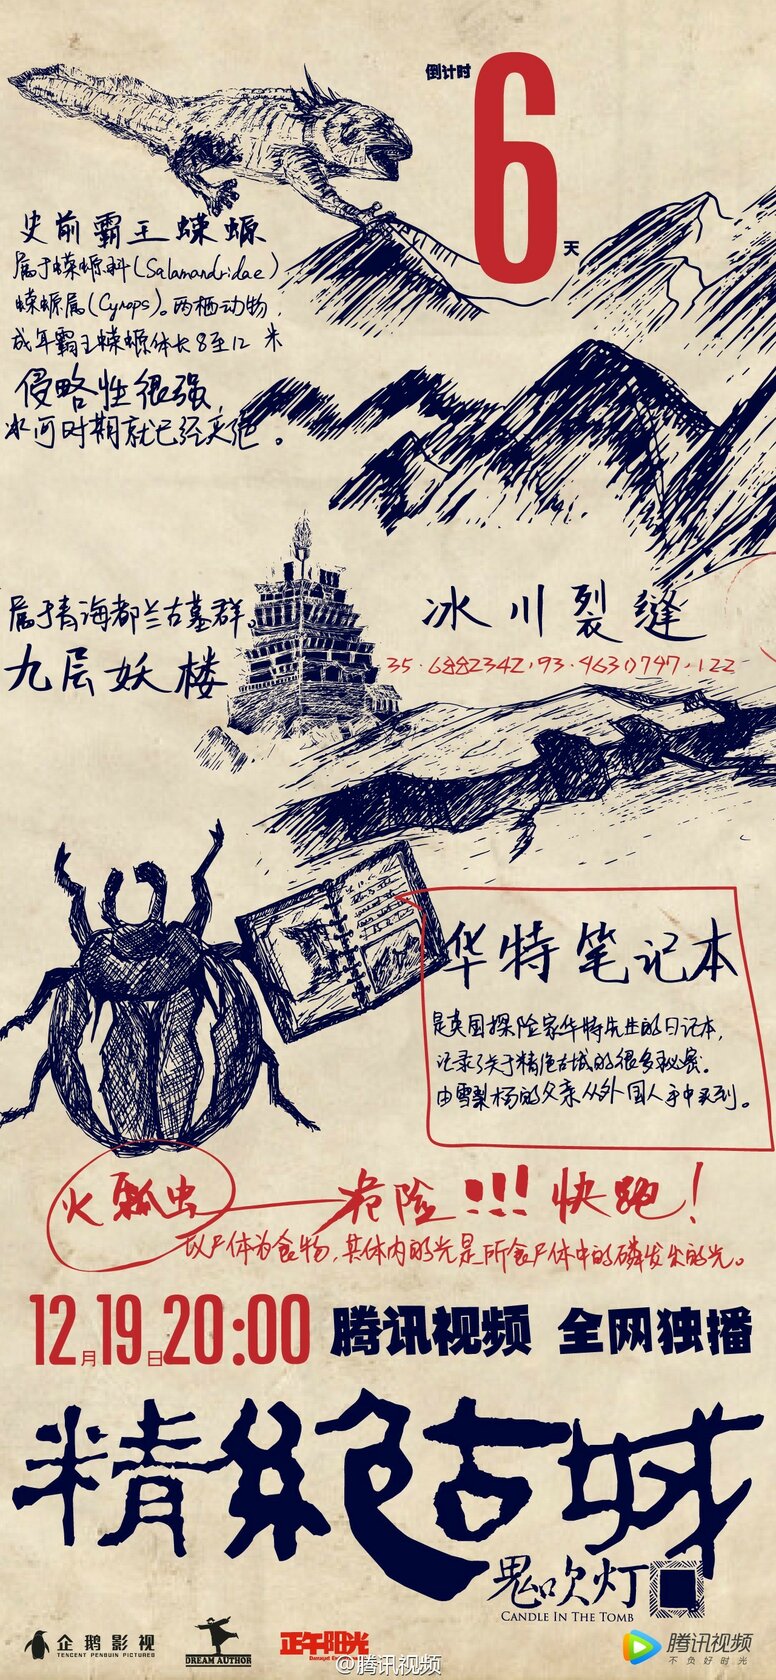 倒计时
6
天
史前霸王蝾螈
属于蝾螈科(Salamandridae)
蝾螈属(Cynops)。两栖动物,
成年霸王蝾螈体长8至12米
侵略性很强,
冰河时期就已经灭绝。
属于青海都兰古墓群。
九层妖楼
冰川裂缝
35.6882342,93.4630747,122
华特笔记本
是英国探险家华特先生的日记本,
记录了关于精绝古城的很多秘密。
由雪梨杨的父亲从外国人手中买到。
火瓢虫——危险!!!快跑!
以尸体为食物,其体内的光是所食尸体中的磷发出的光。
12月19日20:00 腾讯视频 全网独播
精絕古城
鬼吹灯
CANDLE IN THE TOMB
企鹅影视
TENCENT PENGUIN PICTURES
DREAM AUTHOR
正午阳光
腾讯视频
不负好时光
@腾讯视频